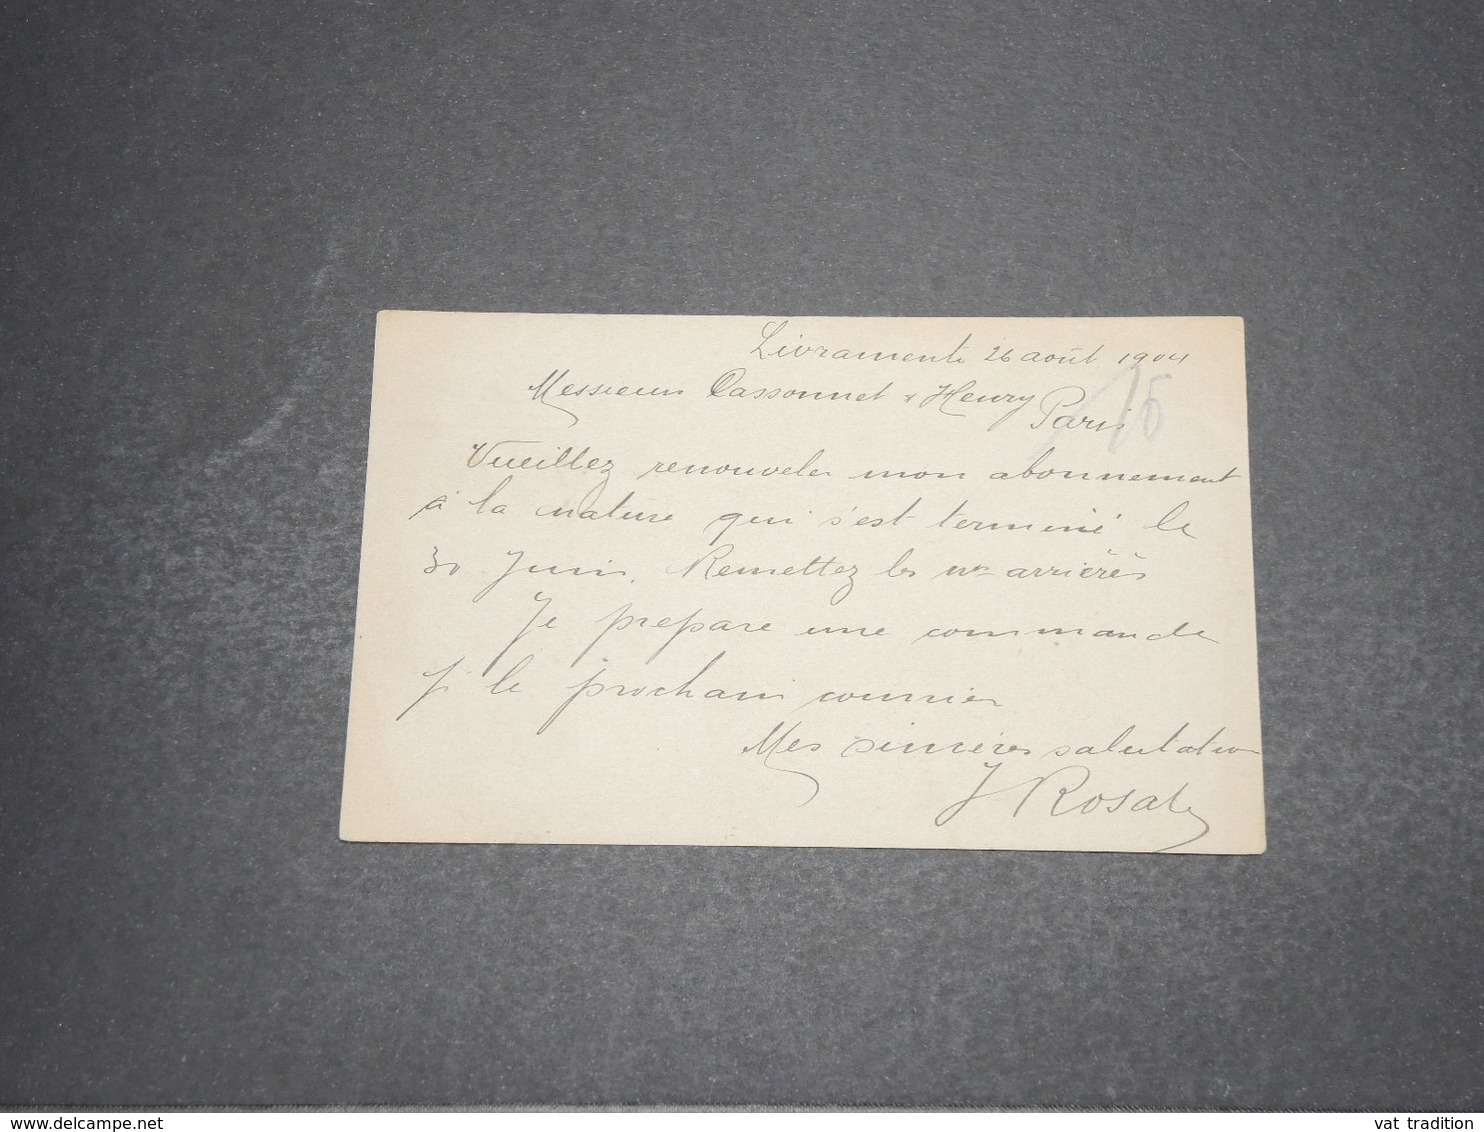 Livramento 26 août 1904
Messieurs Cassonnet & Henry
Paris
15
Veuillez renouveler mon abonnement
à la nature qui s'est terminé le
30 Juin. Remettez les nos arriérés
Je prepare une commande
p. le prochain courrier
Mes sincères salutations
J Rosat
vat tradition
www.delcampe.net